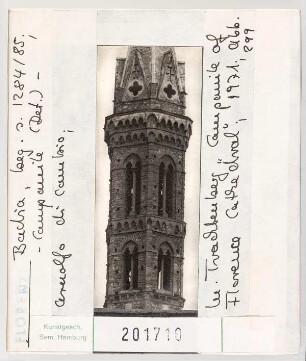 Badia, beg. a. 1284/85,
- Campanile (Det.) -
Arnolfo di Cambio,
M. Trachtenberg, "Campanile of
Florence Cathedral", 1971, Abb.
299
FLORENZ
Kunstgesch.
Sem. Hamburg
201710